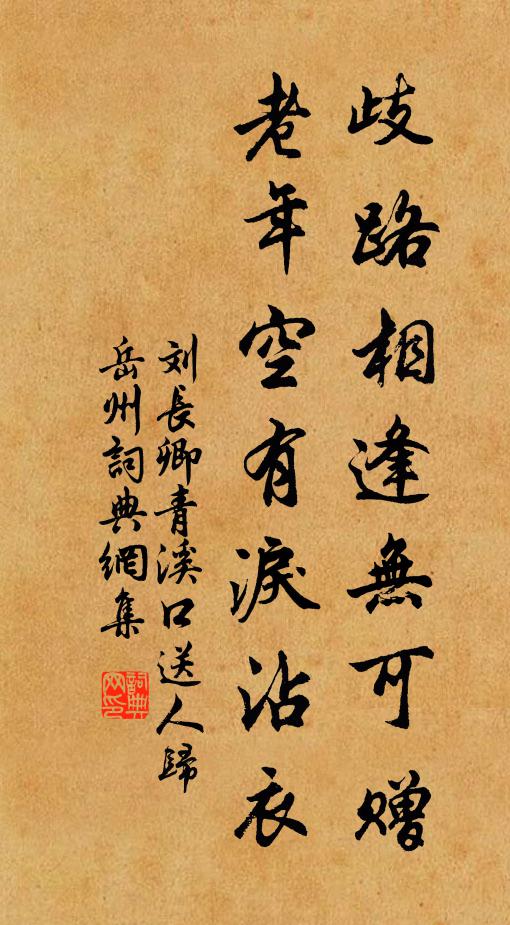 歧路相逢無可贈
老年空有淚沾衣
刘長卿青溪口送人歸
岳州詞典網集
詞典网印